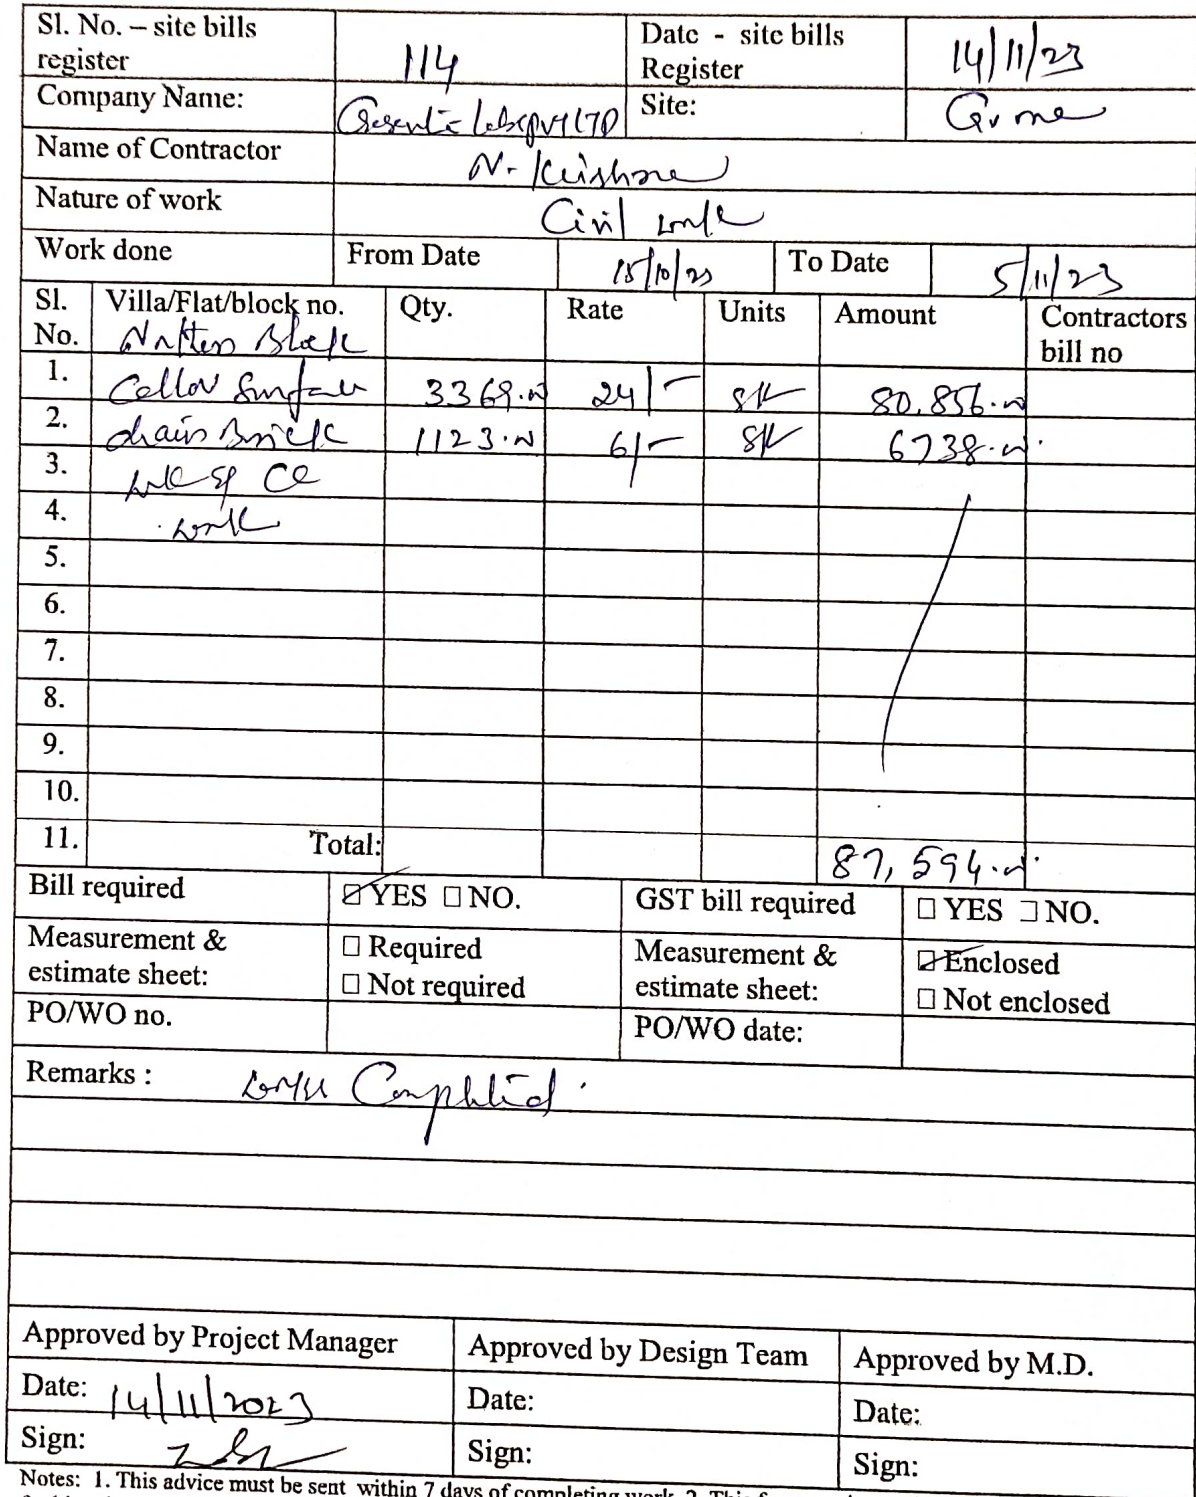 Sl. No. – site bills register 114 Date - site bills Register 14/11/23
Company Name: labs pvt LTD Site:
Name of Contractor N. Krishna
Nature of work Civil work
Work done From Date 15/10/23 To Date 5/11/23
Sl. No. Villa/Flat/block no. Qty. Rate Units Amount Contractors bill no
Block
1. Cellar Surface 3369.00 24/- 80,856.00
2. drain Brick 1123.00 6/- 6738.00
3. work
4. work
5.
6.
7.
8.
9.
10.
11. Total: 87,594.00
Bill required ☑ YES ☐ NO. GST bill required ☐ YES ☐ NO.
Measurement & estimate sheet: ☐ Required ☐ Not required Measurement & estimate sheet: ☑ Enclosed ☐ Not enclosed
PO/WO no. PO/WO date:
Remarks : work Completed.
Approved by Project Manager Approved by Design Team Approved by M.D.
Date: 14/11/2023 Date: Date:
Sign: Sign: Sign:
Notes: 1. This advice must be sent within 7 days of completing work. 2. This